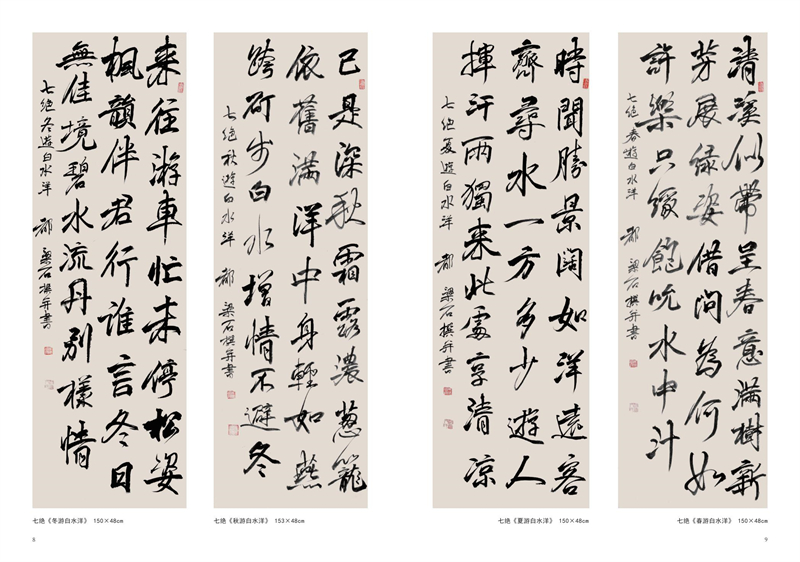 清溪似帶呈春意滿樹新
芽展绿姿借問為何如
許樂只缘飽吮水中汁
七绝春遊白水洋 都梁石撰并書
七绝《春游白水洋》 150×48cm
時聞勝景闊如洋遠客
齊尋水一方多少遊人
揮汗雨獨来此處享清凉
七绝夏遊白水洋 都梁石撰并書
七绝《夏游白水洋》 150×48cm
9
已是深秋霜露濃蔥籠
依舊滿洋中身輕如燕
跨步白水增情不避冬
七绝秋遊白水洋 都梁石撰并書
七绝《秋游白水洋》 153×48cm
来往游車忙未停松姿
楓韻伴君行谁言冬日
無佳境碧水流丹别樣情
七绝冬遊白水洋 都梁石撰并書
七绝《冬游白水洋》 150×48cm
8